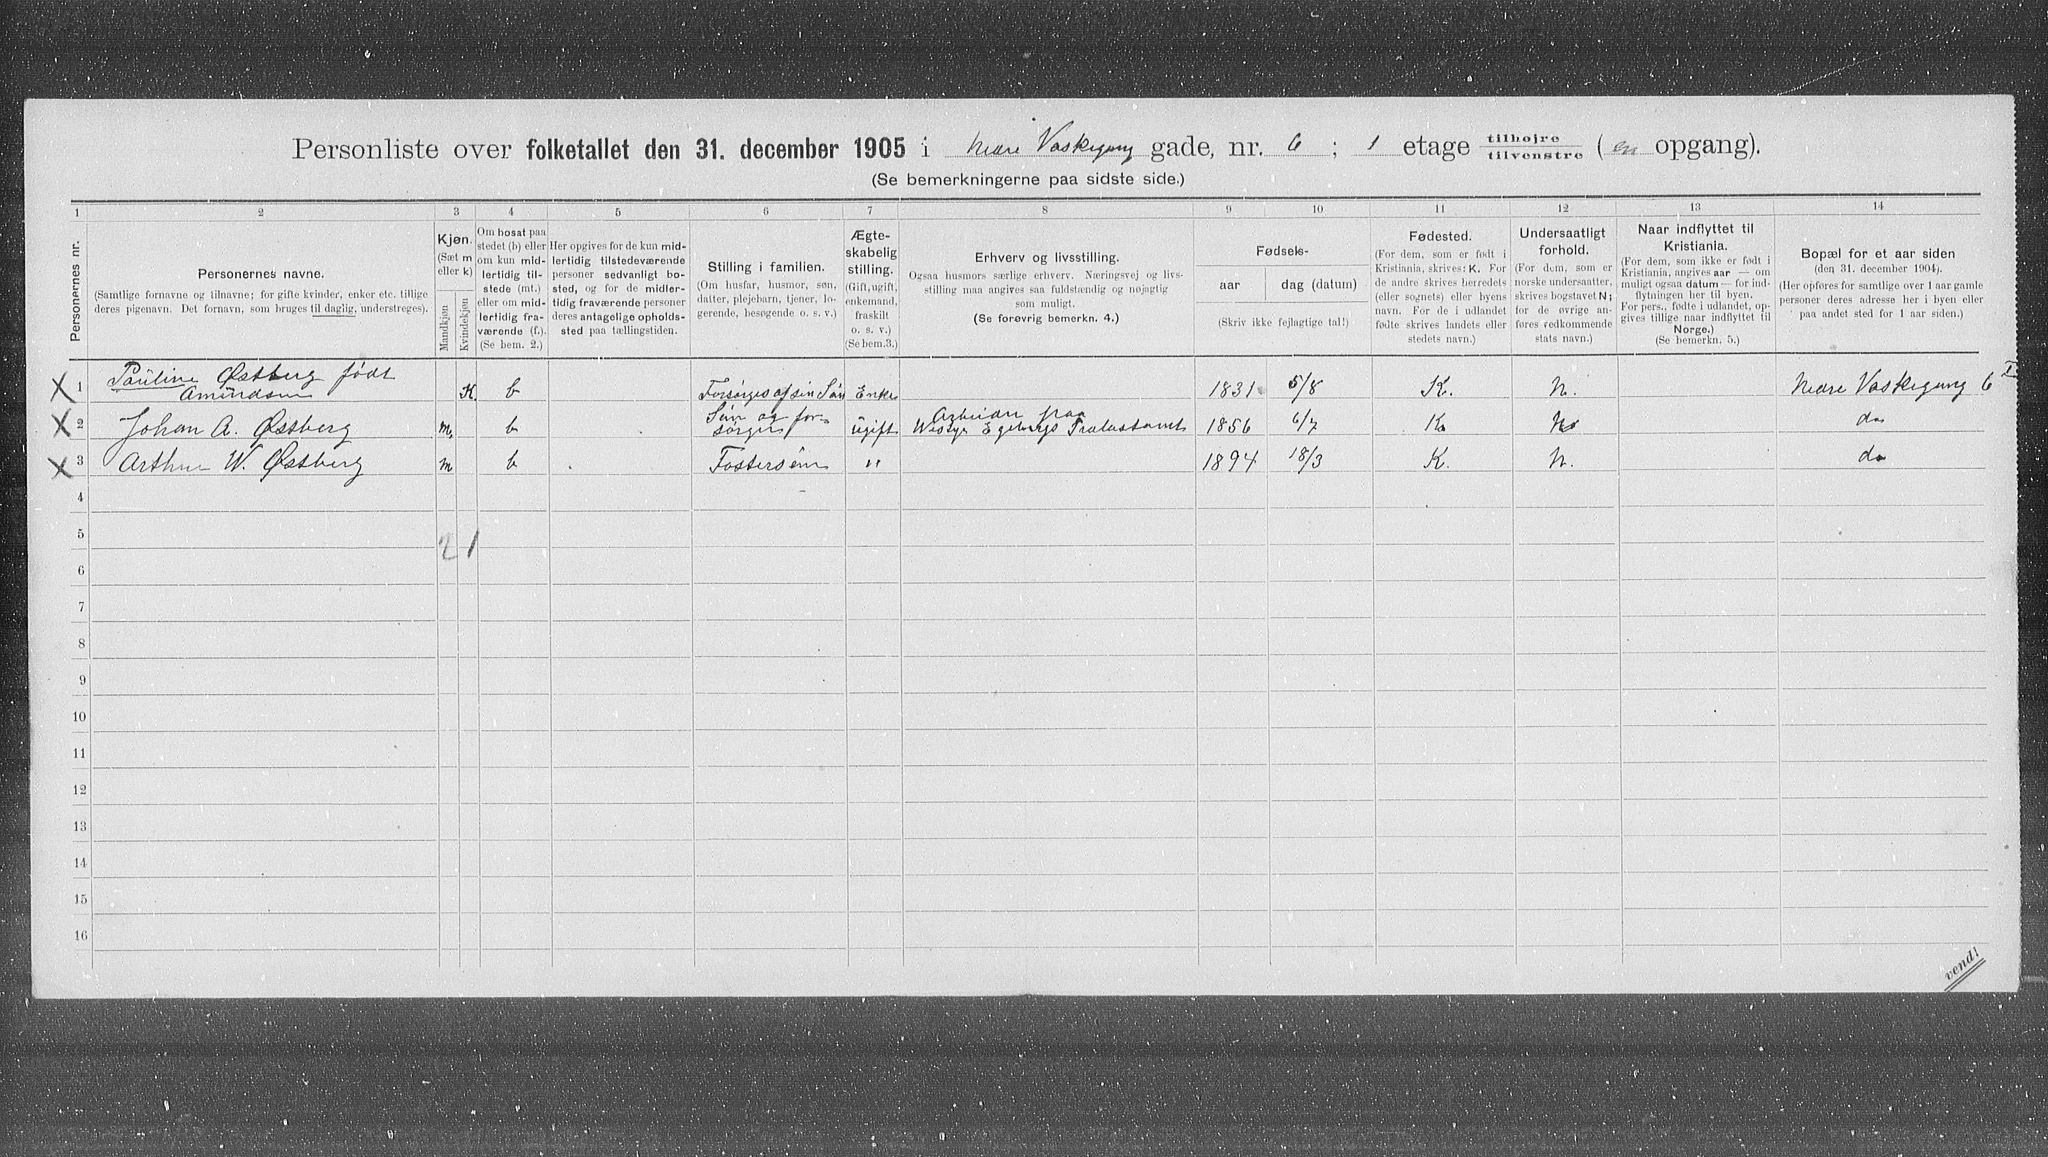 Personliste over folketallet den 31. december 1905 i Nedre Vaskegang gade, nr. 6 ; 1 etage tilhøjre tilvenstre (en opgang).
(Se bemerkningerne paa sidste side.)
1 2 3 4 5 6 7 8 9 10 11 12 13 14
Personernes nr.
Personernes navne.
(Samtlige fornavne og tilnavne; for gifte kvinder, enker etc. tillige
deres pigenavn. Det fornavn, som bruges til daglig, understreges).
Kjøn.
(Sæt m
eller k)
Mandkjøn
Kvindekjøn
Om bosat paa
stedet (b) eller
om kun mid-
lertidig til-
stede (mt.)
eller om mid-
lertidig fra-
værende (f.).
(Se bem. 2.)
Her opgives for de kun mid-
lertidig tilstedeværende
personer sedvanligt bo-
sted, og for de midler-
tidig fraværende personer
deres antagelige opholds-
sted paa tællingstiden.
Stilling i familien.
(Om husfar, husmor, søn,
datter, plejebarn, tjener, lo-
gerende, besøgende o. s. v.)
Ægte-
skabelig
stilling.
(Gift, ugift,
enkemand,
fraskilt
o. s. v.)
(Se bem. 3.)
Erhverv og livsstilling.
Ogsaa husmors særlige erhverv. Næringsvej og livs-
stilling maa angives saa fuldstændig og nøjagtig
som muligt.
(Se forøvrig bemerkn. 4.)
Fødsels-
aar
dag (datum)
(Skriv ikke fejlagtige tal!)
Fødested.
(For dem, som er født i
Kristiania, skrives: K. For
de andre skrives herredets
(eller sognets) eller byens
navn. For de i udlandet
fødte skrives landets eller
stedets navn.)
Undersaatligt
forhold.
(For dem, som er
norske undersaatter,
skrives bogstavet N;
for de øvrige an-
føres vedkommende
stats navn.)
Naar indflyttet til
Kristiania.
(For dem, som ikke er født i
Kristiania, angives aar — om
muligt ogsaa datum — for ind-
flytningen her til byen.
For pers., fødte i udlandet, op-
gives tillige naar indflyttet til
Norge.)
(Se bemerkn. 5.)
Bopæl for et aar siden
(den 31. december 1904).
(Her opføres for samtlige over 1 aar gamle
personer deres adresse her i byen eller
paa andet sted for 1 aar siden.)
X 1 Pauline Østberg født Amundsen K. b Forsørges af sin Søn Enke 1831 5/8 K. N. Nedre Vaskegang 6 I
X 2 Johan A. Østberg m. b Søn og forsørger ugift Arbeider paa Westye Egebergs Trælastomt 1856 6/7 K. N. do
X 3 Arthur W. Østberg m b Fostersøn " 1894 18/3 K. N. do
4
5
2 1
6
7
8
9
10
11
12
13
14
15
16
vend!